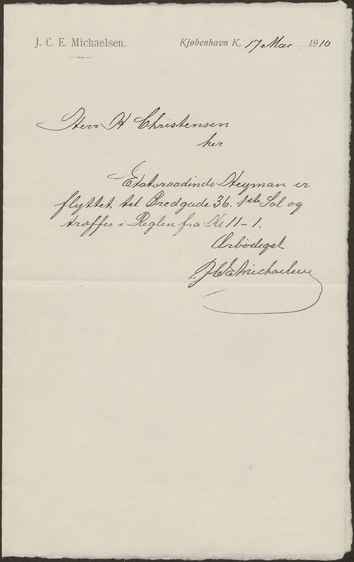 J. C. E. Michaelsen.
Kjøbenhavn K. 17 Mai 1910
Herr H Christensen
her
Etatsraadinde Heyman er
flyttet til Bredgade 36. 1ste Sal og
træffes i Reglen fra Kl 11-1.
Ærbødigst
JCEMichaelsen